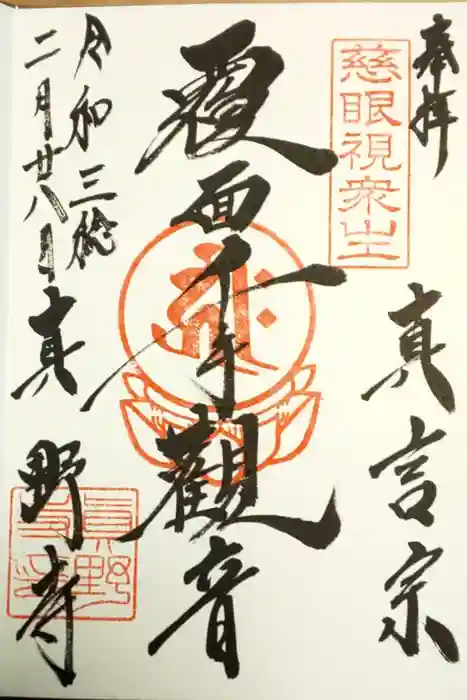 奉拝
真言宗
慈眼視衆生
覆面千手観音
令和三稔
二月廿八日
真野寺
真野寺印